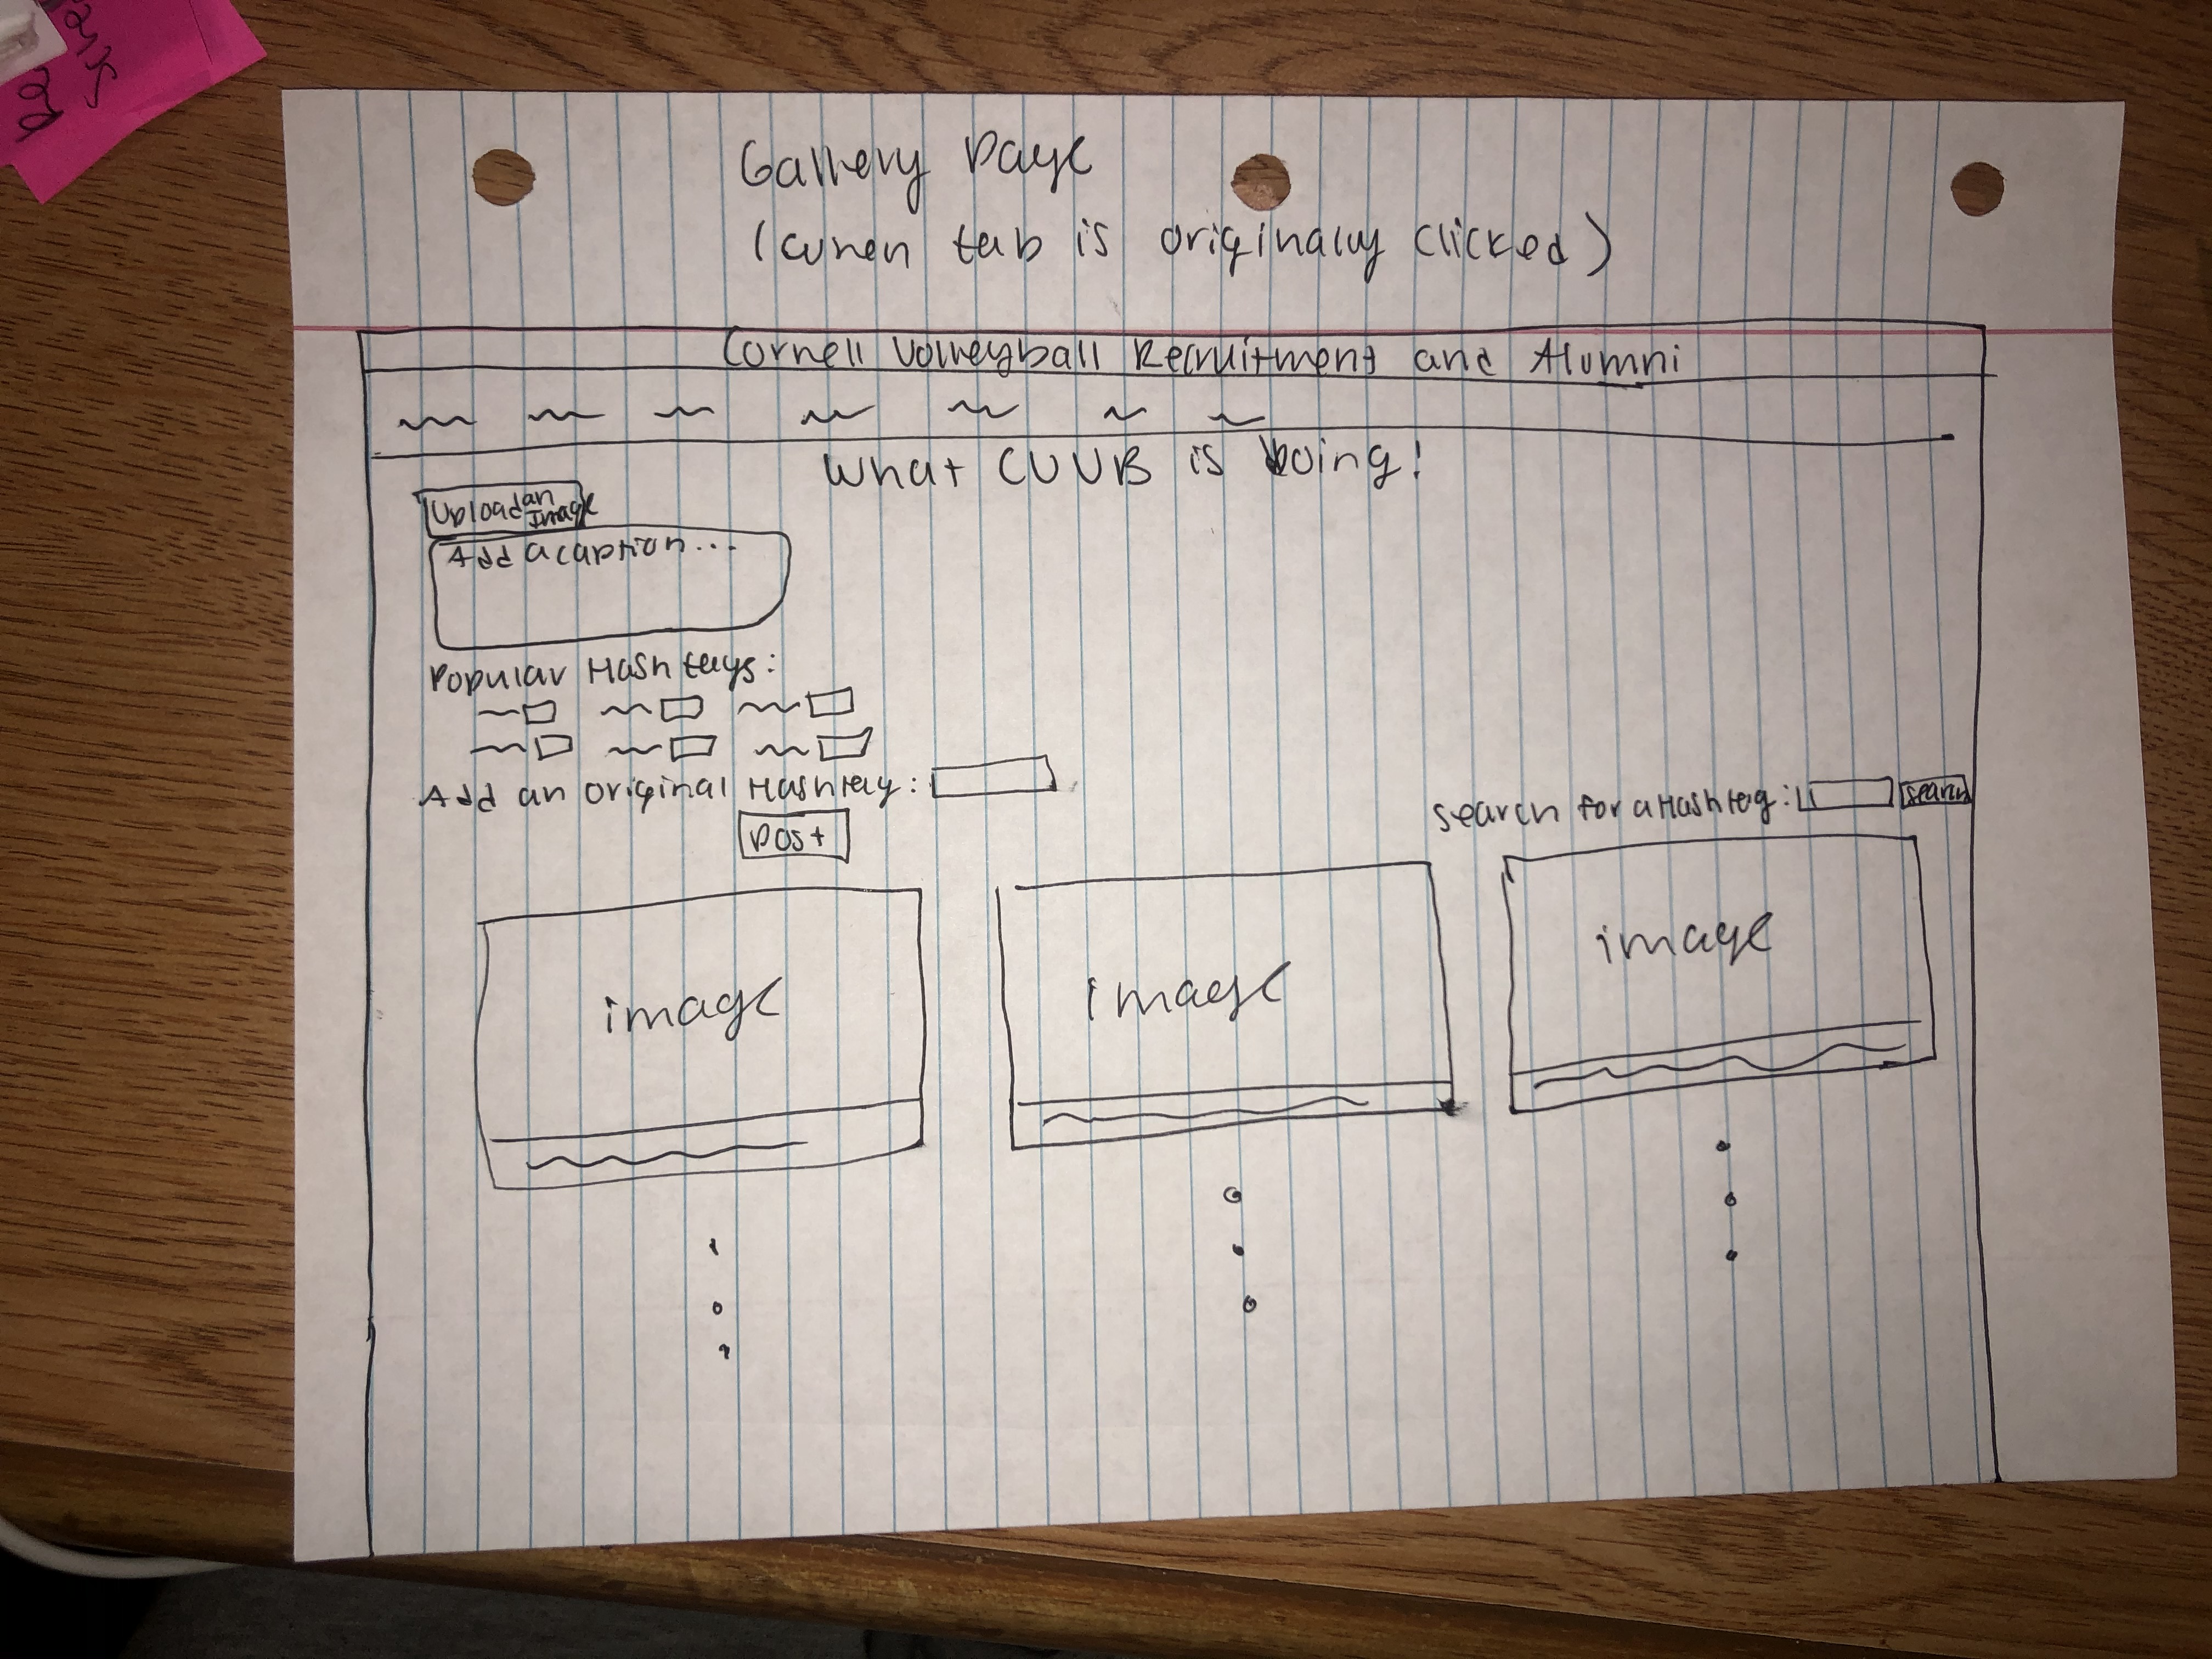 Gallery Page
(when tab is originally clicked)
Cornell Volleyball Recruitment and Alumni
What CUVB is Doing!
Upload an Image
Add a caption...
Popular Hashtags:
Add an original Hashtag:
Post
search for a Hashtag:
search
image
image
image